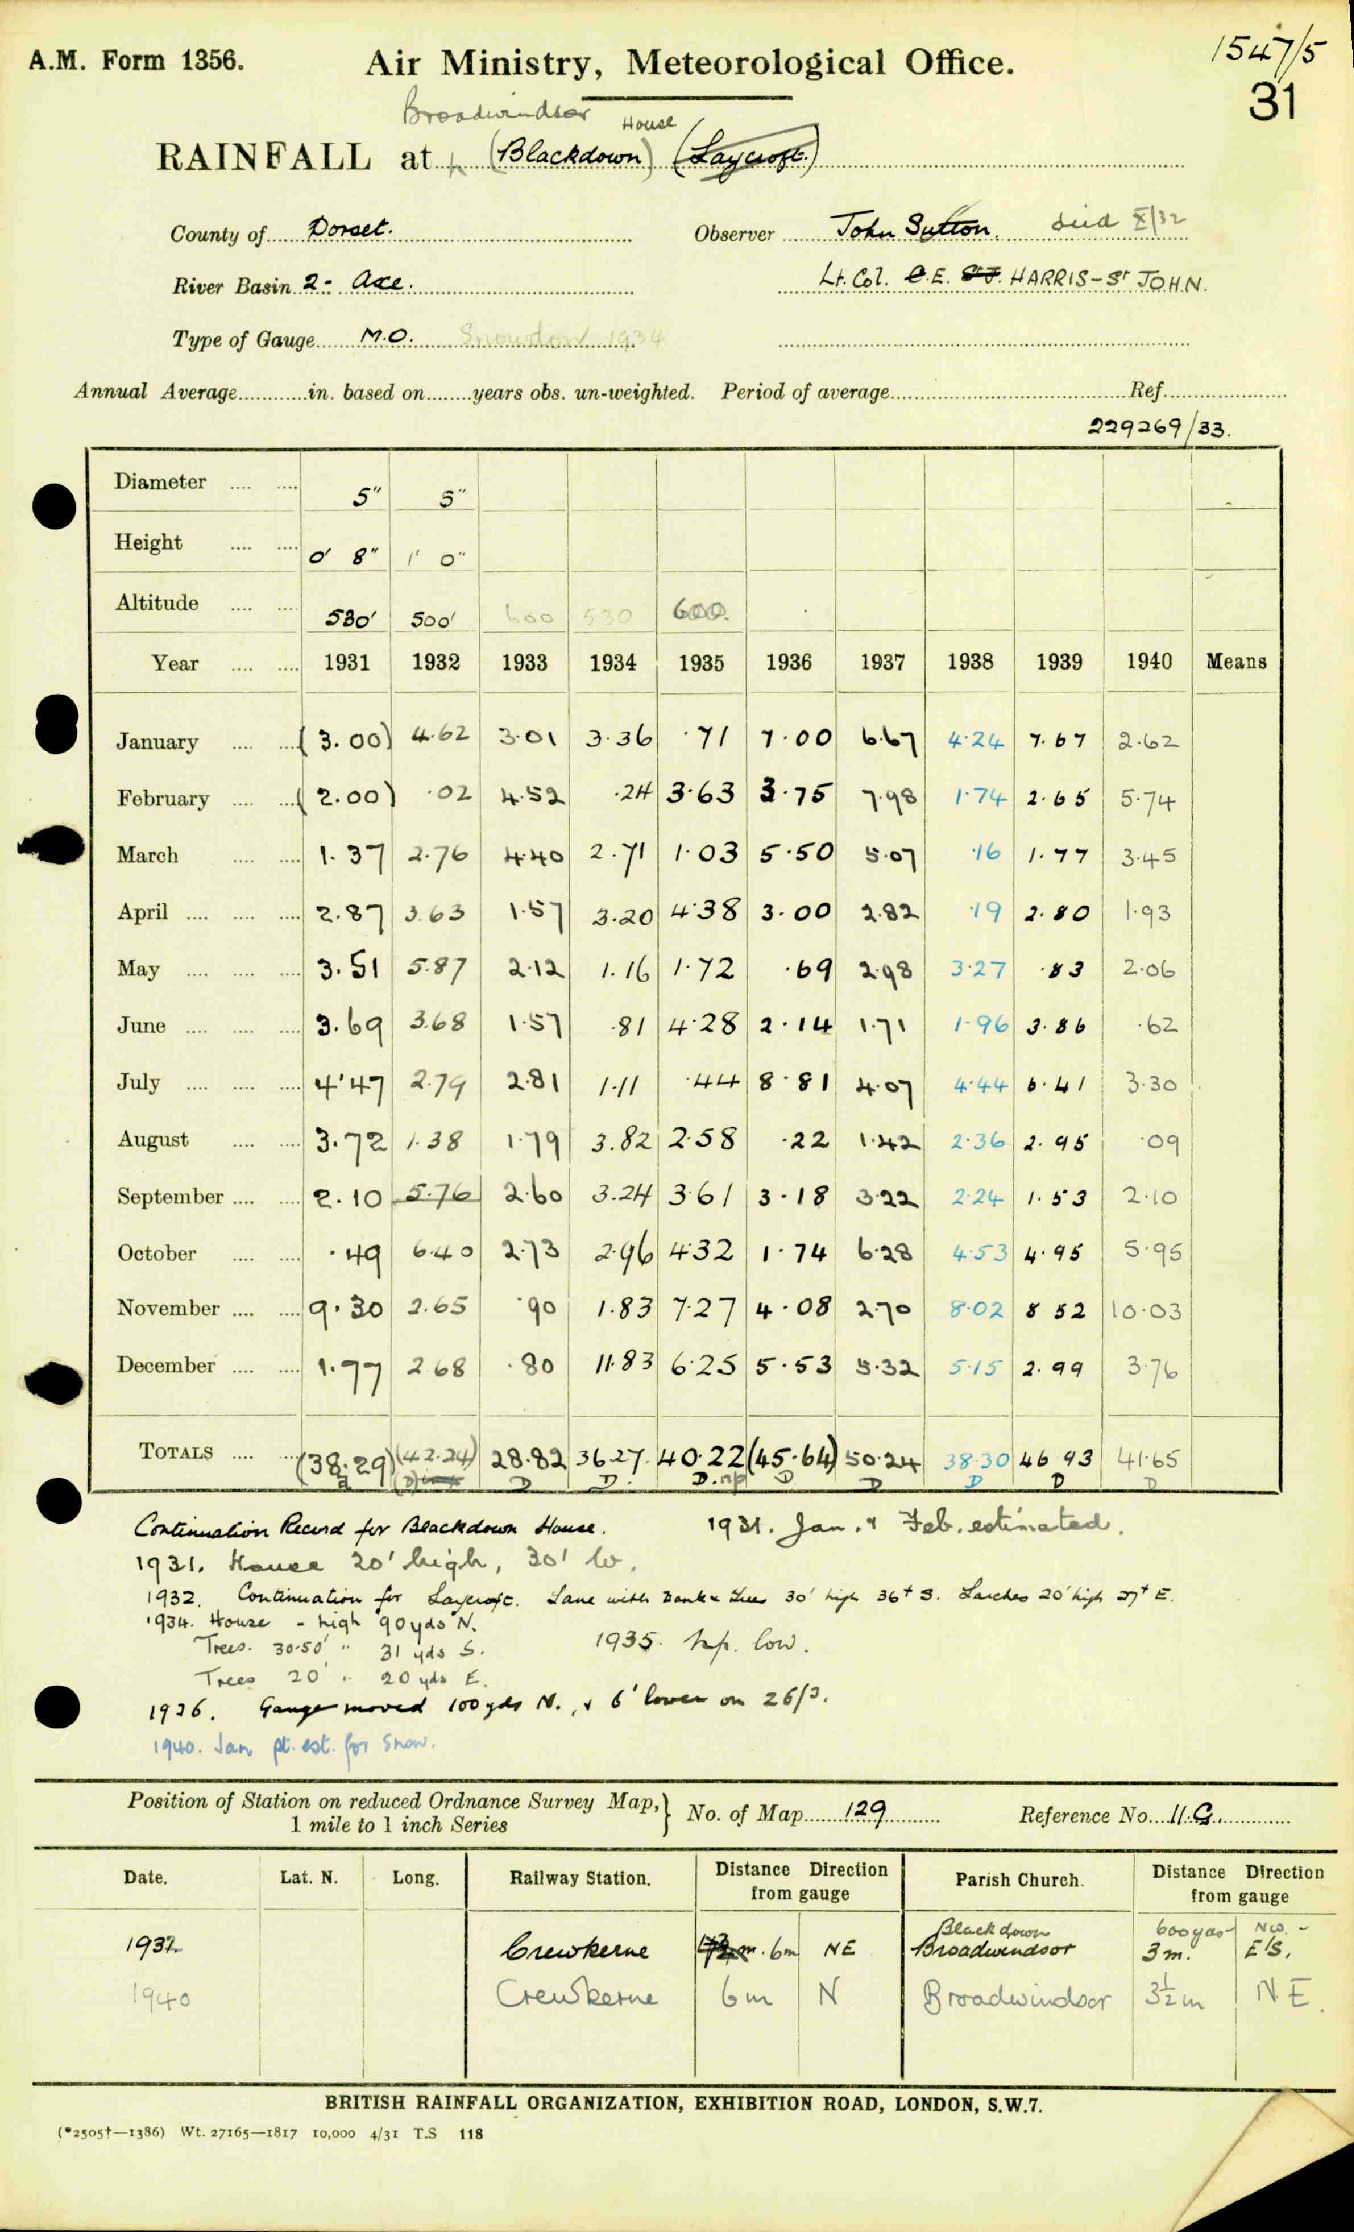 1547/5
A.M. Form 1356. Air Ministry, Meteorological Office. 31
Broadwindsor House
RAINFALL at (Blackdown) (Laycroft.)
County of Dorset. Observer John Sutton. died X/32
River Basin 2- Axe. Lt. Col. C.E. St J. HARRIS-St JOHN.
Type of Gauge M.O. Snowdon 1934
Annual Average in. based on years obs. un-weighted. Period of average Ref.
229269/33.
Diameter 5" 5"
Height 0' 8" 1' 0"
Altitude 530' 500' 600 530 600.
Year 1931 1932 1933 1934 1935 1936 1937 1938 1939 1940 Means
January (3.00) 4.62 3.01 3.36 .71 7.00 6.67 4.24 7.67 2.62
February (2.00) .02 4.52 .24 3.63 3.75 7.98 1.74 2.65 5.74
March 1.37 2.76 4.40 2.71 1.03 5.50 5.07 .16 1.77 3.45
April 2.87 3.63 1.57 3.20 4.38 3.00 2.82 .19 2.80 1.93
May 3.51 5.87 2.12 1.16 1.72 .69 2.98 3.27 .83 2.06
June 3.69 3.68 1.57 .81 4.28 2.14 1.71 1.96 3.86 .62
July 4.47 2.79 2.81 1.11 .44 8.81 4.07 4.44 6.41 3.30
August 3.72 1.38 1.79 3.82 2.58 .22 1.42 2.36 2.95 .09
September 2.10 5.76 2.60 3.24 3.61 3.18 3.22 2.24 1.53 2.10
October .49 6.40 2.73 2.96 4.32 1.74 6.28 4.53 4.95 5.95
November 9.30 2.65 .90 1.83 7.27 4.08 2.70 8.02 8 52 10.03
December 1.77 2.68 .80 11.83 6.25 5.53 5.32 5.15 2.99 3.76
TOTALS (38.29) (42.24) 28.82 36.27. 40.22 (45.64) 50.24 38.30 46 93 41.65
a (D) D D. D. np D D D D D
Continuation Record for Blackdown House. 1931. Jan. & Feb. estimated.
1931. House 20' high, 30' W.
1932. Continuation for Laycroft. Lane with Bank & Trees 30' high 36ft S. Larches 20' high 27ft E.
1934. House - high 90 yds N.
Trees. 30-50' " 31 yds S. 1935. np. low.
Trees 20' " 20 yds E.
1936. Gauge moved 100 yds N., & 6' lower on 26/3.
1940. Jan pt. est. for Snow.
Position of Station on reduced Ordnance Survey Map, } No. of Map 129 Reference No. 11.G.
1 mile to 1 inch Series
Date. Lat. N. Long. Railway Station. Distance Direction from gauge Parish Church. Distance Direction from gauge
Blackdown 600 yds NW.
1932 Crewkerne 6m NE Broadwindsor 3 m. E'S.
1940 Crewkerne 6 m N Broadwindsor 3½ m N E.
BRITISH RAINFALL ORGANIZATION, EXHIBITION ROAD, LONDON, S.W.7.
(*2505†—1386) Wt. 27165—1817 10,000 4/31 T.S 118